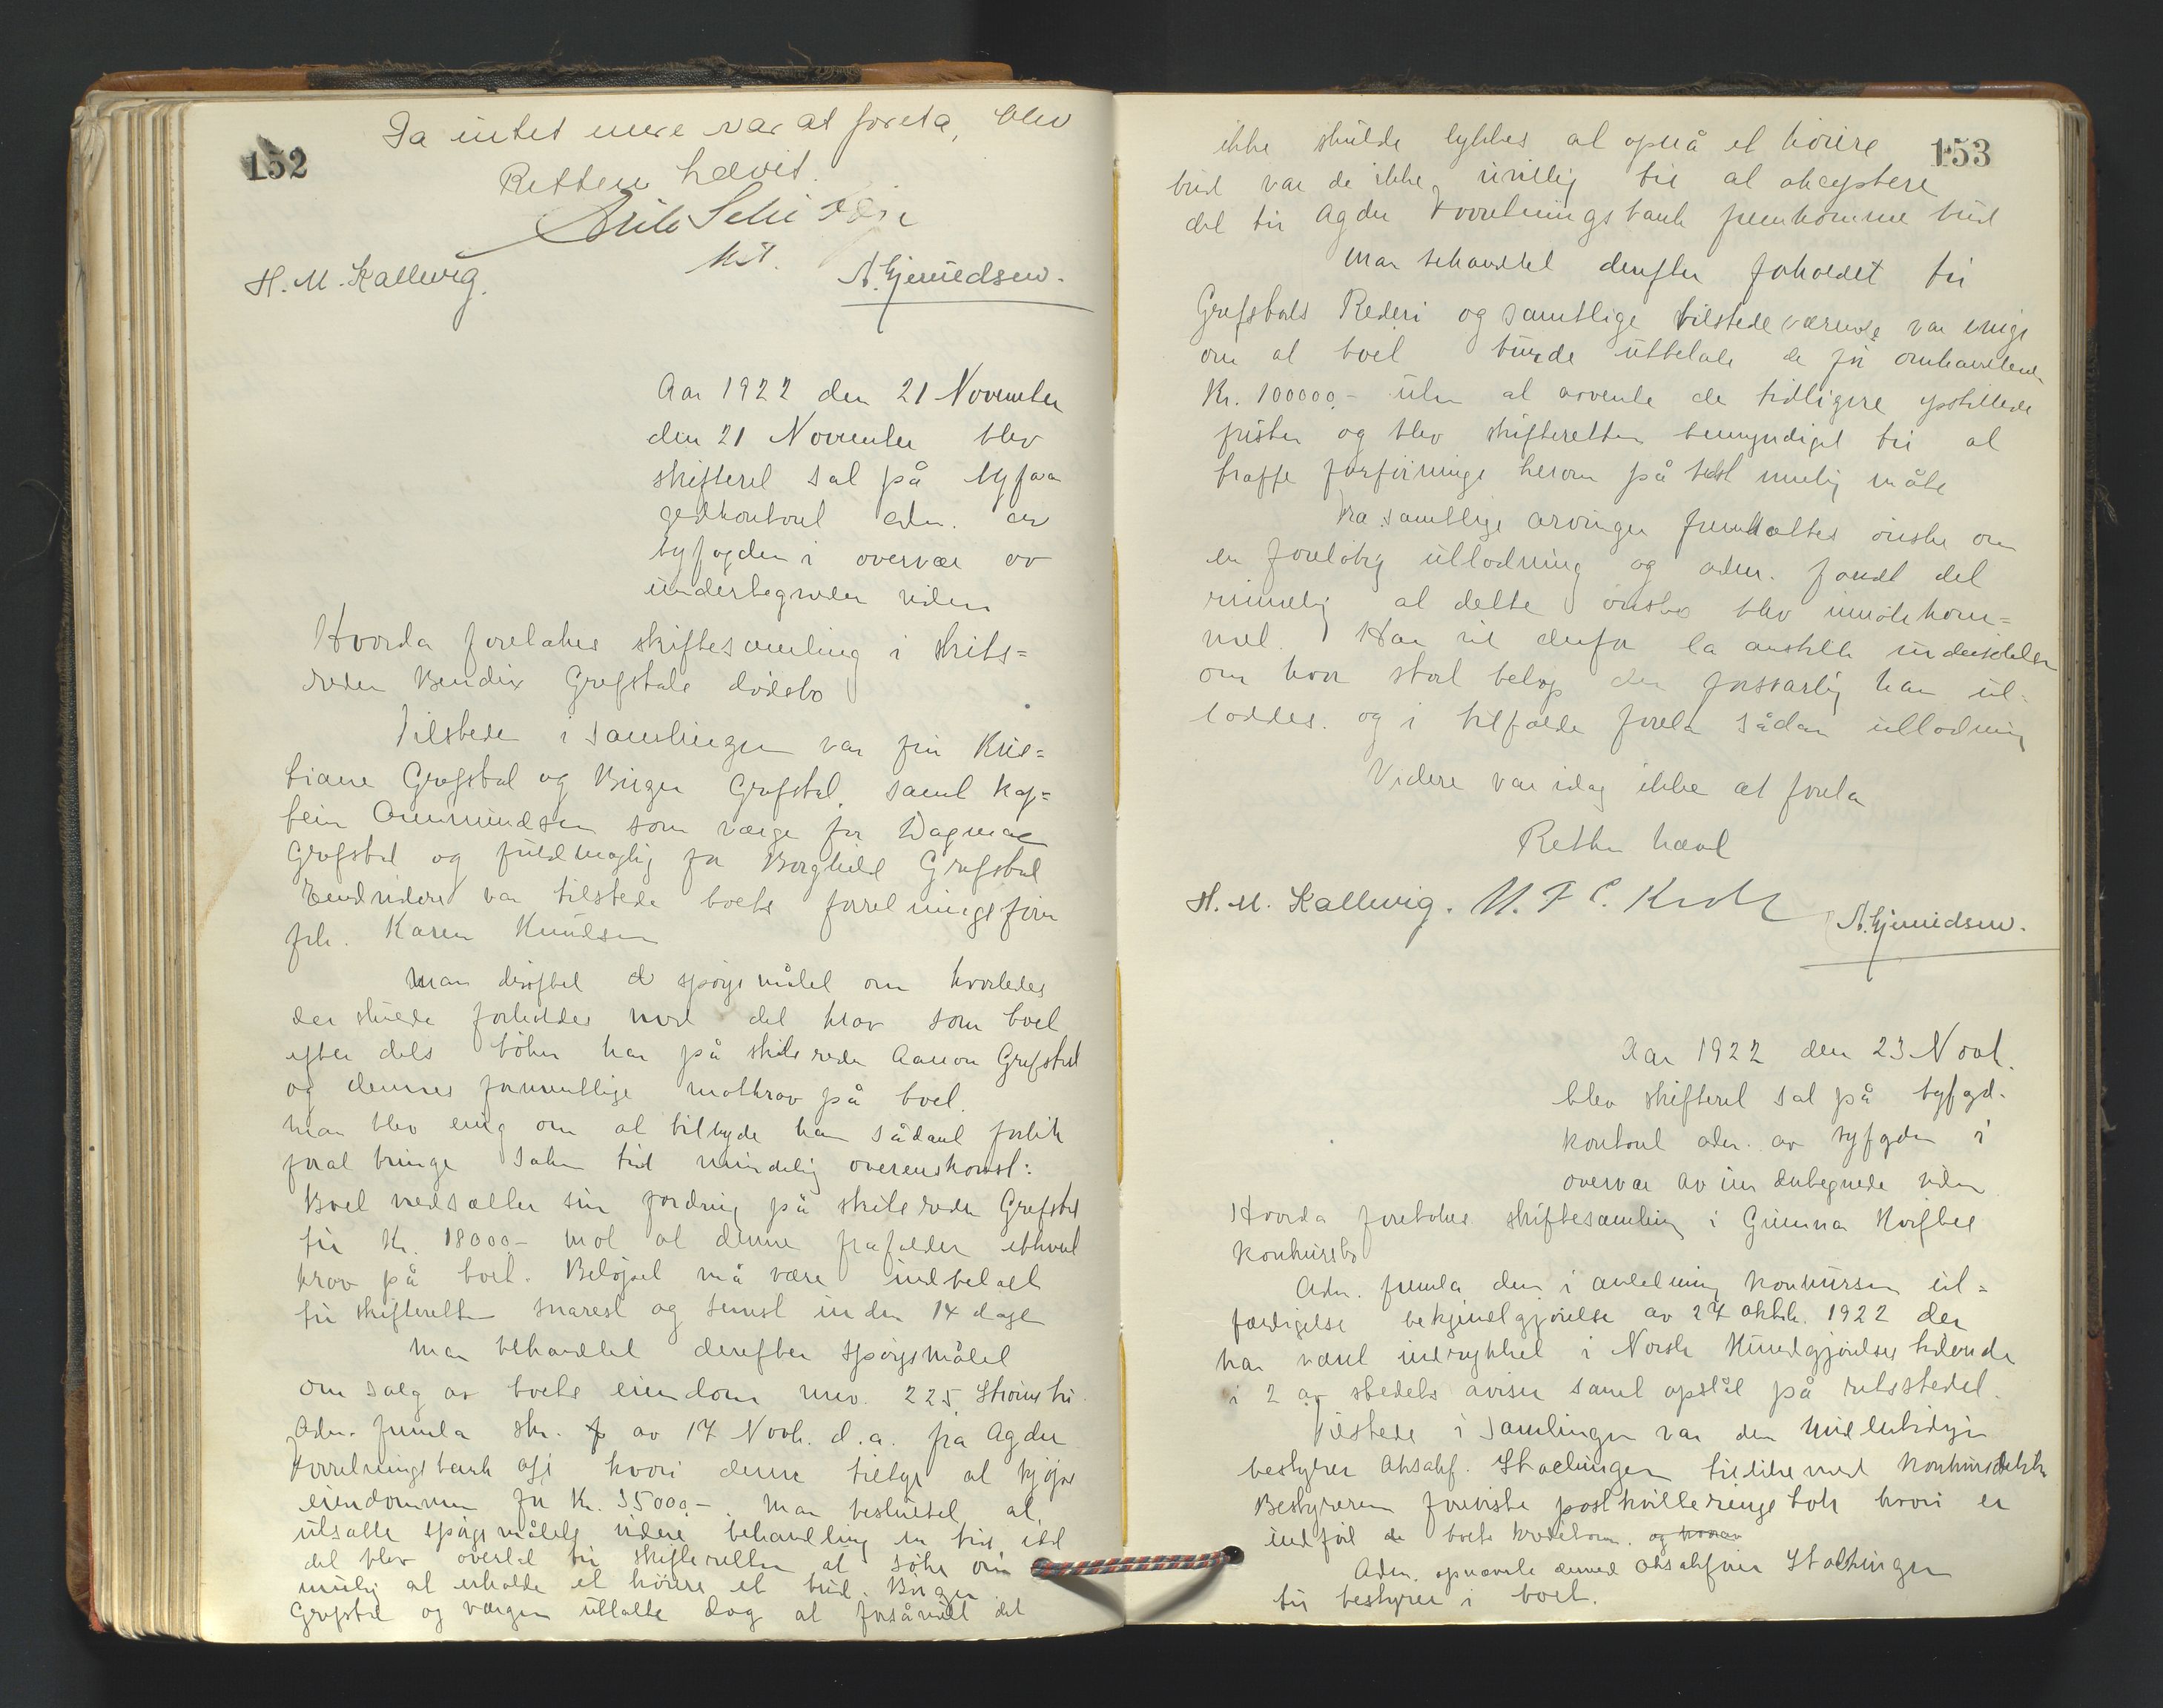 152
Da intet mere var at foreta, blev
Retten hævet.
kst.
H. M. Kallevig.
A. Gjemedsen.
Aar 1922 den 21 November
den 21 November blev
skifteret sat på byfo
gedkontoret adm. av
byfogden i overvær av
undertegnede vidner
Hvorda foretokes skiftesamling i skibs=
reder Bendix Grefstads dödsbo
Tilstede i samlingen var fru Kris=
tiane Grefstad og Birger Grefstad, samt kap=
tein Ommundsen som værge for Dagmar
Grefstad og fuldmægtig for Borghild Grefstad
Endvidere var tilstede boets forretningsförer
frk. Karen Knudsen
Man dröftet d spörsmålet om hvorledes
der skulde forholdes med det krav som boet
efter dets böker har på skibsreder Aanon Grefstad
og dennes formentlige motkrav på boet.
Man blev enig om at tilbyde ham sådant forlik
forat bringe saken til mindelig overenskomst:
Boet nedsætter sin fordring på skibsreder Grefstad
til Kr. 18000,- mot at denne frafalder ethvert
krav på boet. Belöpet må være indbetalt
til skifteretten snarest og senest inden 14 dage
Man behandlet derefter spörsmålet
om salg av boets eiendom mnr. 225 Strömsbu.
Adm. fremla skr. f av 17 Novbr. d.a. fra Agder
Forretningsbank A/S hvori denne tilbyr at kjöpe
eiendommen for Kr. 35000,-. Man besluttet at
utsætte spörsmålets videre behandling en tid, idet
det blev overlat til skifteretten at söke om
mulig at erholde et höiere et bud. Birger
Grefstad og værgen uttalte dog at forsåvidt det
153
ikke skulde lykkes at opnå et höiere
bud var de ikke uvillig til at akceptere
det til Agder Forretningsbank fremkomne bud
Man behandlet derefter forholdet til
Grefstads Rederi og samtlige tilstedeværende var enige
om at boet burde utbetale de før omhandlede
Kr. 100000,- uten at avvente de tidligere opstillede
frister og blev skifteretten bemyndiget til at
træffe forföininger herom på bedst mulig måte
Fra samtlige arvinger fremsattes önske om
en foreløbig utlodning og adm. fandt det
rimelig at dette önske blev imötekom=
met. Han vil derfor la anstille undersökelser
om hvor stort belöp der forsvarlig kan ut-
loddes. og i tilfælde foreta sådan utlodning
Videre var idag ikke at foreta
Retten hævet
H. M. Kallevig.
A. Gjemedsen.
Aar 1922 den 23 Novbr.
blev skifteret sat på byfgd.
kontoret adm. av byfgden i
overvær av undertegnede vidner
Hvorda foretokes skiftesamling i Gunnar
konkursbo
Adm. fremla den i anledning konkursen ut=
færdigelse bekjendtgjörelse av 27 oktbr. 1922 der
har været indrykket i Norsk Kundgjörelsestidende
i 2 av stedets aviser samt opslåt på retsstedet.
Tilstede i samlingen var den midlertidige
bestyrer o.r.sakf. Stachingen tillikemed konkursdebitor
Bestyreren foreviste postkvitteringsbok hvori er
indfört de boets kreditorer. og hvorav
Adm. opnævnte derved o.r.sakförer Stachingen
til bestyrer i boet.